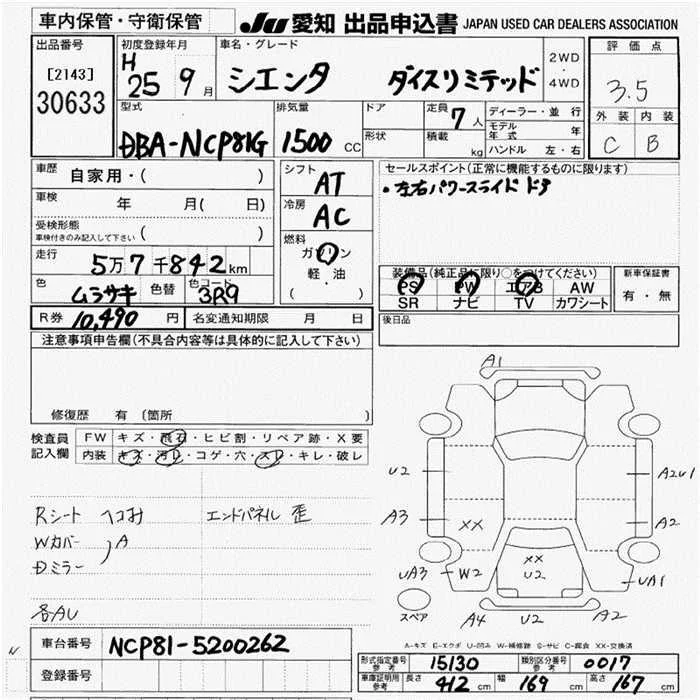 車内保管・守衛保管
JU 愛知 出品申込書 JAPAN USED CAR DEALERS ASSOCIATION
出品番号
[2143]
30633
初度登録年月
H 25 9月
車名・グレード
シエンタ ダイスリミテッド
2WD・4WD
評価点
3.5
外装 内装
C B
型式
DBA-NCP81G
排気量
1500 CC
ドア
形状
定員 7人
積載 kg
ディーラー・並行
モデル年式 年
ハンドル 左・右
車歴 自家用・( )
車検 年 月( 日)
受検形態
車検付きのみ記入して下さい ( )
走行
5万7千842km
色 ムラサキ 色替 色コード 3R9
シフト AT
冷房 AC
燃料
ガソリン
軽・油
( )
セールスポイント(正常に機能するものに限ります)
・左右パワースライドドア
装備品(純正品に限り○をつけてください)
PS PW エアB AW
SR ナビ TV カワシート
新車保証書
有・無
R券 10,490円 名変通知期限 月 日
後日品
注意事項申告欄(不具合内容等は具体的に記入して下さい)
修復歴 有 (箇所
検査員記入欄
FW キズ・飛石・ヒビ割・リペア跡・X要
内装 キズ・汚レ・コゲ・穴・スレ・キレ・破レ
Rシート ヘコみ エンドパネル 歪
Wカバー
Dミラー ) A
各AU
A1
U2 A2U1
A3 XX A2
XX
UA3 W2 U2 UA1
スペア A4 U2 A2
A-キズ E-エクボ U-凹み W-補修跡 S-サビ C-腐食 XX-交換済
車台番号 NCP81-5200262
登録番号
型式指定番号参考 15130 類別区分番号参考 0017
車庫証明用参考 長さ 412cm 幅 169cm 高さ 167cm